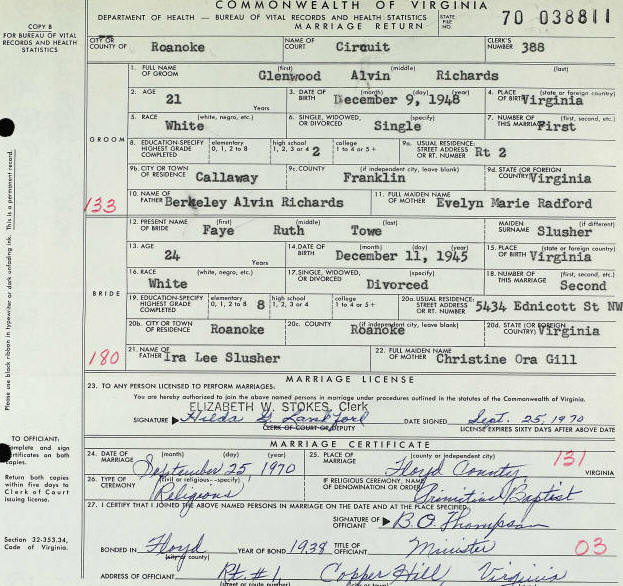 COMMONWEALTH OF VIRGINIA
DEPARTMENT OF HEALTH — BUREAU OF VITAL RECORDS AND HEALTH STATISTICS
MARRIAGE RETURN
STATE FILE NO. 70 038811
COPY B
FOR BUREAU OF VITAL RECORDS AND HEALTH STATISTICS
CITY OR COUNTY OF Roanoke NAME OF COURT Circuit CLERK'S NUMBER 388
GROOM
1. FULL NAME OF GROOM (first) (middle) (last) Glenwood Alvin Richards
2. AGE 21 Years 3. DATE OF BIRTH (month) (day) (year) December 9, 1948 4. PLACE OF BIRTH (state or foreign country) Virginia
5. RACE (white, negro, etc.) White 6. SINGLE, WIDOWED, OR DIVORCED (specify) Single 7. NUMBER OF THIS MARRIAGE (first, second, etc.) First
8. EDUCATION-SPECIFY HIGHEST GRADE COMPLETED elementary 0, 1, 2 to 8 high school 1, 2, 3 or 4 2 college 1 to 4 or 5+ 9a. USUAL RESIDENCE: STREET ADDRESS OR RT. NUMBER Rt 2
9b. CITY OR TOWN OF RESIDENCE Callaway 9c. COUNTY (if independent city, leave blank) Franklin 9d. STATE (OR FOREIGN COUNTRY) Virginia
133
10. NAME OF FATHER Berkeley Alvin Richards 11. FULL MAIDEN NAME OF MOTHER Evelyn Marie Radford
BRIDE
12. PRESENT NAME OF BRIDE (first) (middle) (last) Faye Ruth Towe MAIDEN SURNAME (if different) Slusher
13. AGE 24 Years 14. DATE OF BIRTH (month) (day) (year) December 11, 1945 15. PLACE OF BIRTH (state or foreign country) Virginia
16. RACE (white, negro, etc.) White 17. SINGLE, WIDOWED, OR DIVORCED (specify) Divorced 18. NUMBER OF THIS MARRIAGE (first, second, etc.) Second
19. EDUCATION-SPECIFY HIGHEST GRADE COMPLETED elementary 0, 1, 2 to 8 8 high school 1, 2, 3 or 4 college 1 to 4 or 5+ 20a. USUAL RESIDENCE: STREET ADDRESS OR RT. NUMBER 5434 Ednicott St NW
20b. CITY OR TOWN OF RESIDENCE Roanoke 20c. COUNTY (if independent city, leave blank) Roanoke 20d. STATE (OR FOREIGN COUNTRY) Virginia
180
21. NAME OF FATHER Ira Lee Slusher 22. FULL MAIDEN NAME OF MOTHER Christine Ora Gill
MARRIAGE LICENSE
23. TO ANY PERSON LICENSED TO PERFORM MARRIAGES:
You are hereby authorized to join the above named persons in marriage under procedures outlined in the statutes of the Commonwealth of Virginia.
ELIZABETH W. STOKES, Clerk
SIGNATURE Hilda G Lankford DATE SIGNED Sept. 25, 1970
CLERK OF COURT OR DEPUTY LICENSE EXPIRES SIXTY DAYS AFTER ABOVE DATE
MARRIAGE CERTIFICATE
24. DATE OF MARRIAGE (month) (day) (year) September 25 1970 25. PLACE OF MARRIAGE (county or independent city) Floyd County, VIRGINIA 131
26. TYPE OF CEREMONY (civil or religious—specify) Religious IF RELIGIOUS CEREMONY, NAME OF DENOMINATION OR ORDER Primitive Baptist
27. I CERTIFY THAT I JOINED THE ABOVE NAMED PERSONS IN MARRIAGE ON THE DATE AND AT THE PLACE SPECIFIED.
SIGNATURE OF OFFICIANT B.O. Thompson
BONDED IN Floyd (city or county) YEAR OF BOND 1938 TITLE OF OFFICIANT Minister 03
ADDRESS OF OFFICIANT Rt. #1 Copper Hill, Virginia
(street or route number)
Please use black ribbon in typewriter or dark unfading ink. This is a permanent record.
TO OFFICIANT:
Complete and sign certificates on both copies.
Return both copies within five days to Clerk of Court issuing license.
Section 32-353.34, Code of Virginia.